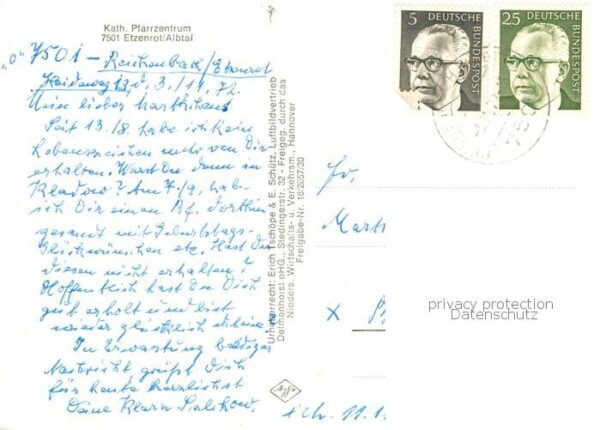 Kath. Pfarrzentrum
7501 Etzenrot/Albtal
"o" 7501 – Reichenbach/Etzenrot
Heideweg 13, d. 3./11. 72.
Mein lieber
Seit 13./8. habe ich kein
Lebenszeichen mehr von Dir
erhalten. Warst Du denn in
Kladow? Am 7./9. hab-
ich Dir einen Bf. dorthin
gesandt mit Geburtstags-
Glückwünschen etc. Hast Du
diesen nicht erhalten?
Hoffentlich hast Du Dich
gut erholt und bist
wieder glücklich daheim.
In Erwartung baldiger
Nachricht grüßt Dich
für heute herzlichst
Deine Klara
Urheberrecht: Erich Tschöpe & E. Schütz, Luftbildvertrieb
Delmenhorst oHG., Stedingerstr. 32 · Freigeg. durch das
Nieders. Wirtschafts- u. Verkehrsm., Hannover
Freigabe-Nr. 16/2857/30
5
DEUTSCHE
BUNDESPOST
25
DEUTSCHE
BUNDESPOST
Fr.
Mart
x
privacy protection
Datenschutz